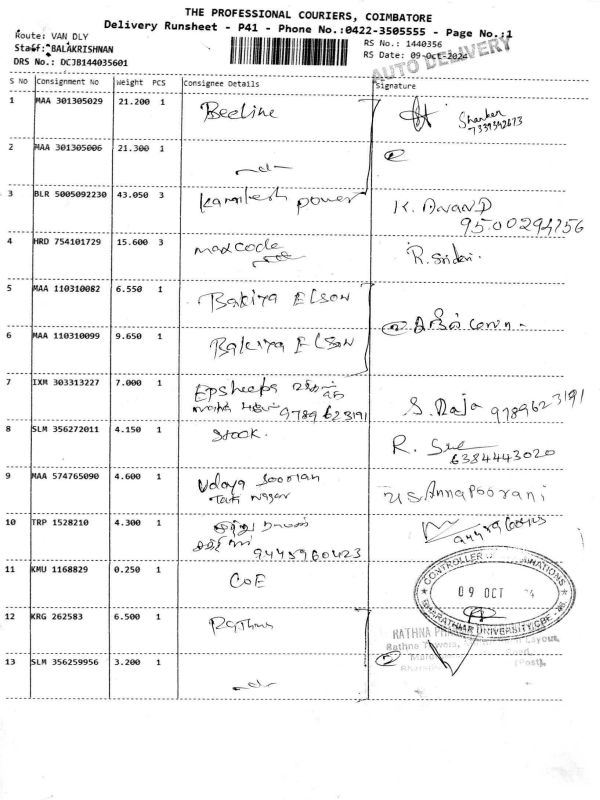 THE PROFESSIONAL COURIERS, COIMBATORE
Delivery Runsheet - P41 - Phone No.:0422-3505555 - Page No.:1
Route: VAN DLY
Staff: BALAKRISHNAN
DRS No.: DCJB144035601
RS No.: 1440356
RS Date: 09-Oct-2024
AUTO DELIVERY
S No Consignment No Weight PCS Consignee Details Signature
1 MAA 301305029 21.200 1 Beeline Shanker
7339342673
2 MAA 301305006 21.300 1 -do-
3 BLR 5005092230 43.050 3 power K. ANAND
9500294756
4 HRD 754101729 15.600 3 maxcode R. Sridevi
5 MAA 110310082 6.550 1 Bakiya ELSON
6 MAA 110310099 9.650 1 Bakiya ELSON
7 IXM 303313227 7.000 1 9789623191 S. Raja 9789623191
8 SLM 356272011 4.150 1 Stock. R.
6384443020
9 MAA 574765090 4.600 1 Udaya Soorian
Nagar Annapoorani
10 TRP 1528210 4.300 1
9445960423 9445960423
11 KMU 1168829 0.250 1 COE
CONTROLLER OF EXAMINATIONS
09 OCT
BHARATHIAR UNIVERSITY, CBE - 46
12 KRG 262583 6.500 1 Rathna
RATHNA
Rathna Towers, Layout,
(Post),
13 SLM 356259956 3.200 1 -do-